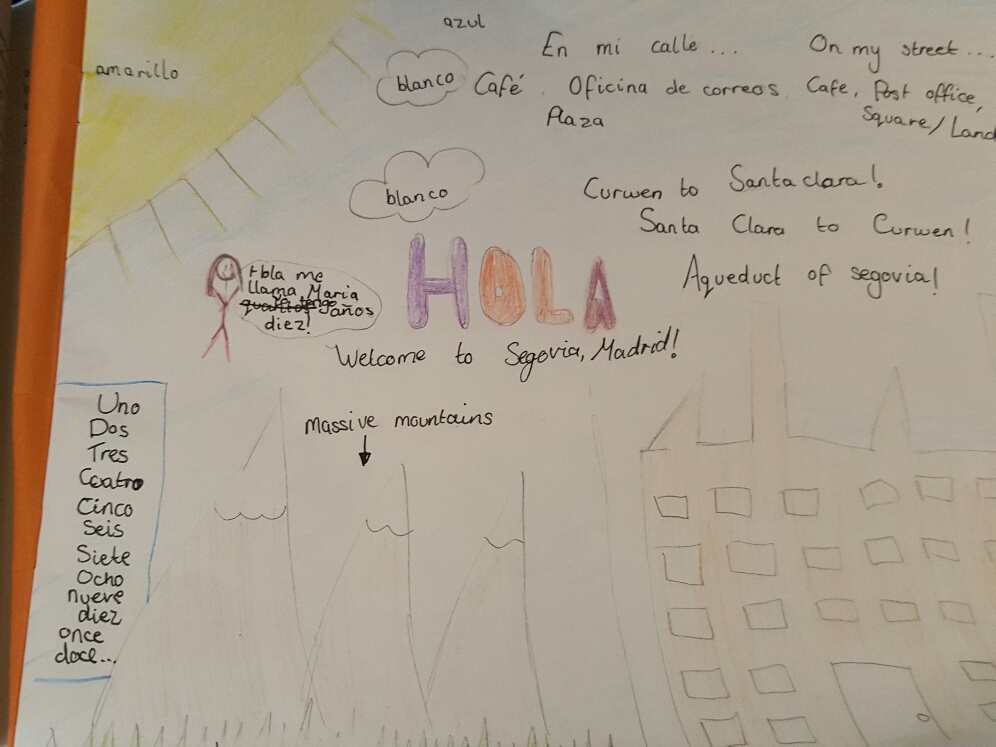 azul
En mi calle ...
On my street ...
amarillo
blanco
Café, Oficina de correos
Plaza
Cafe, Post office,
Square/Land
blanco
Curwen to Santa clara!
Santa Clara to Curwen!
Aqueduct of segovia!
HOLA
Hola me
llama Maria
tengo años
diez!
Welcome to Segovia, Madrid!
Massive mountains
Uno
Dos
Tres
Cuatro
Cinco
Seis
Siete
Ocho
nueve
diez
once
doce...